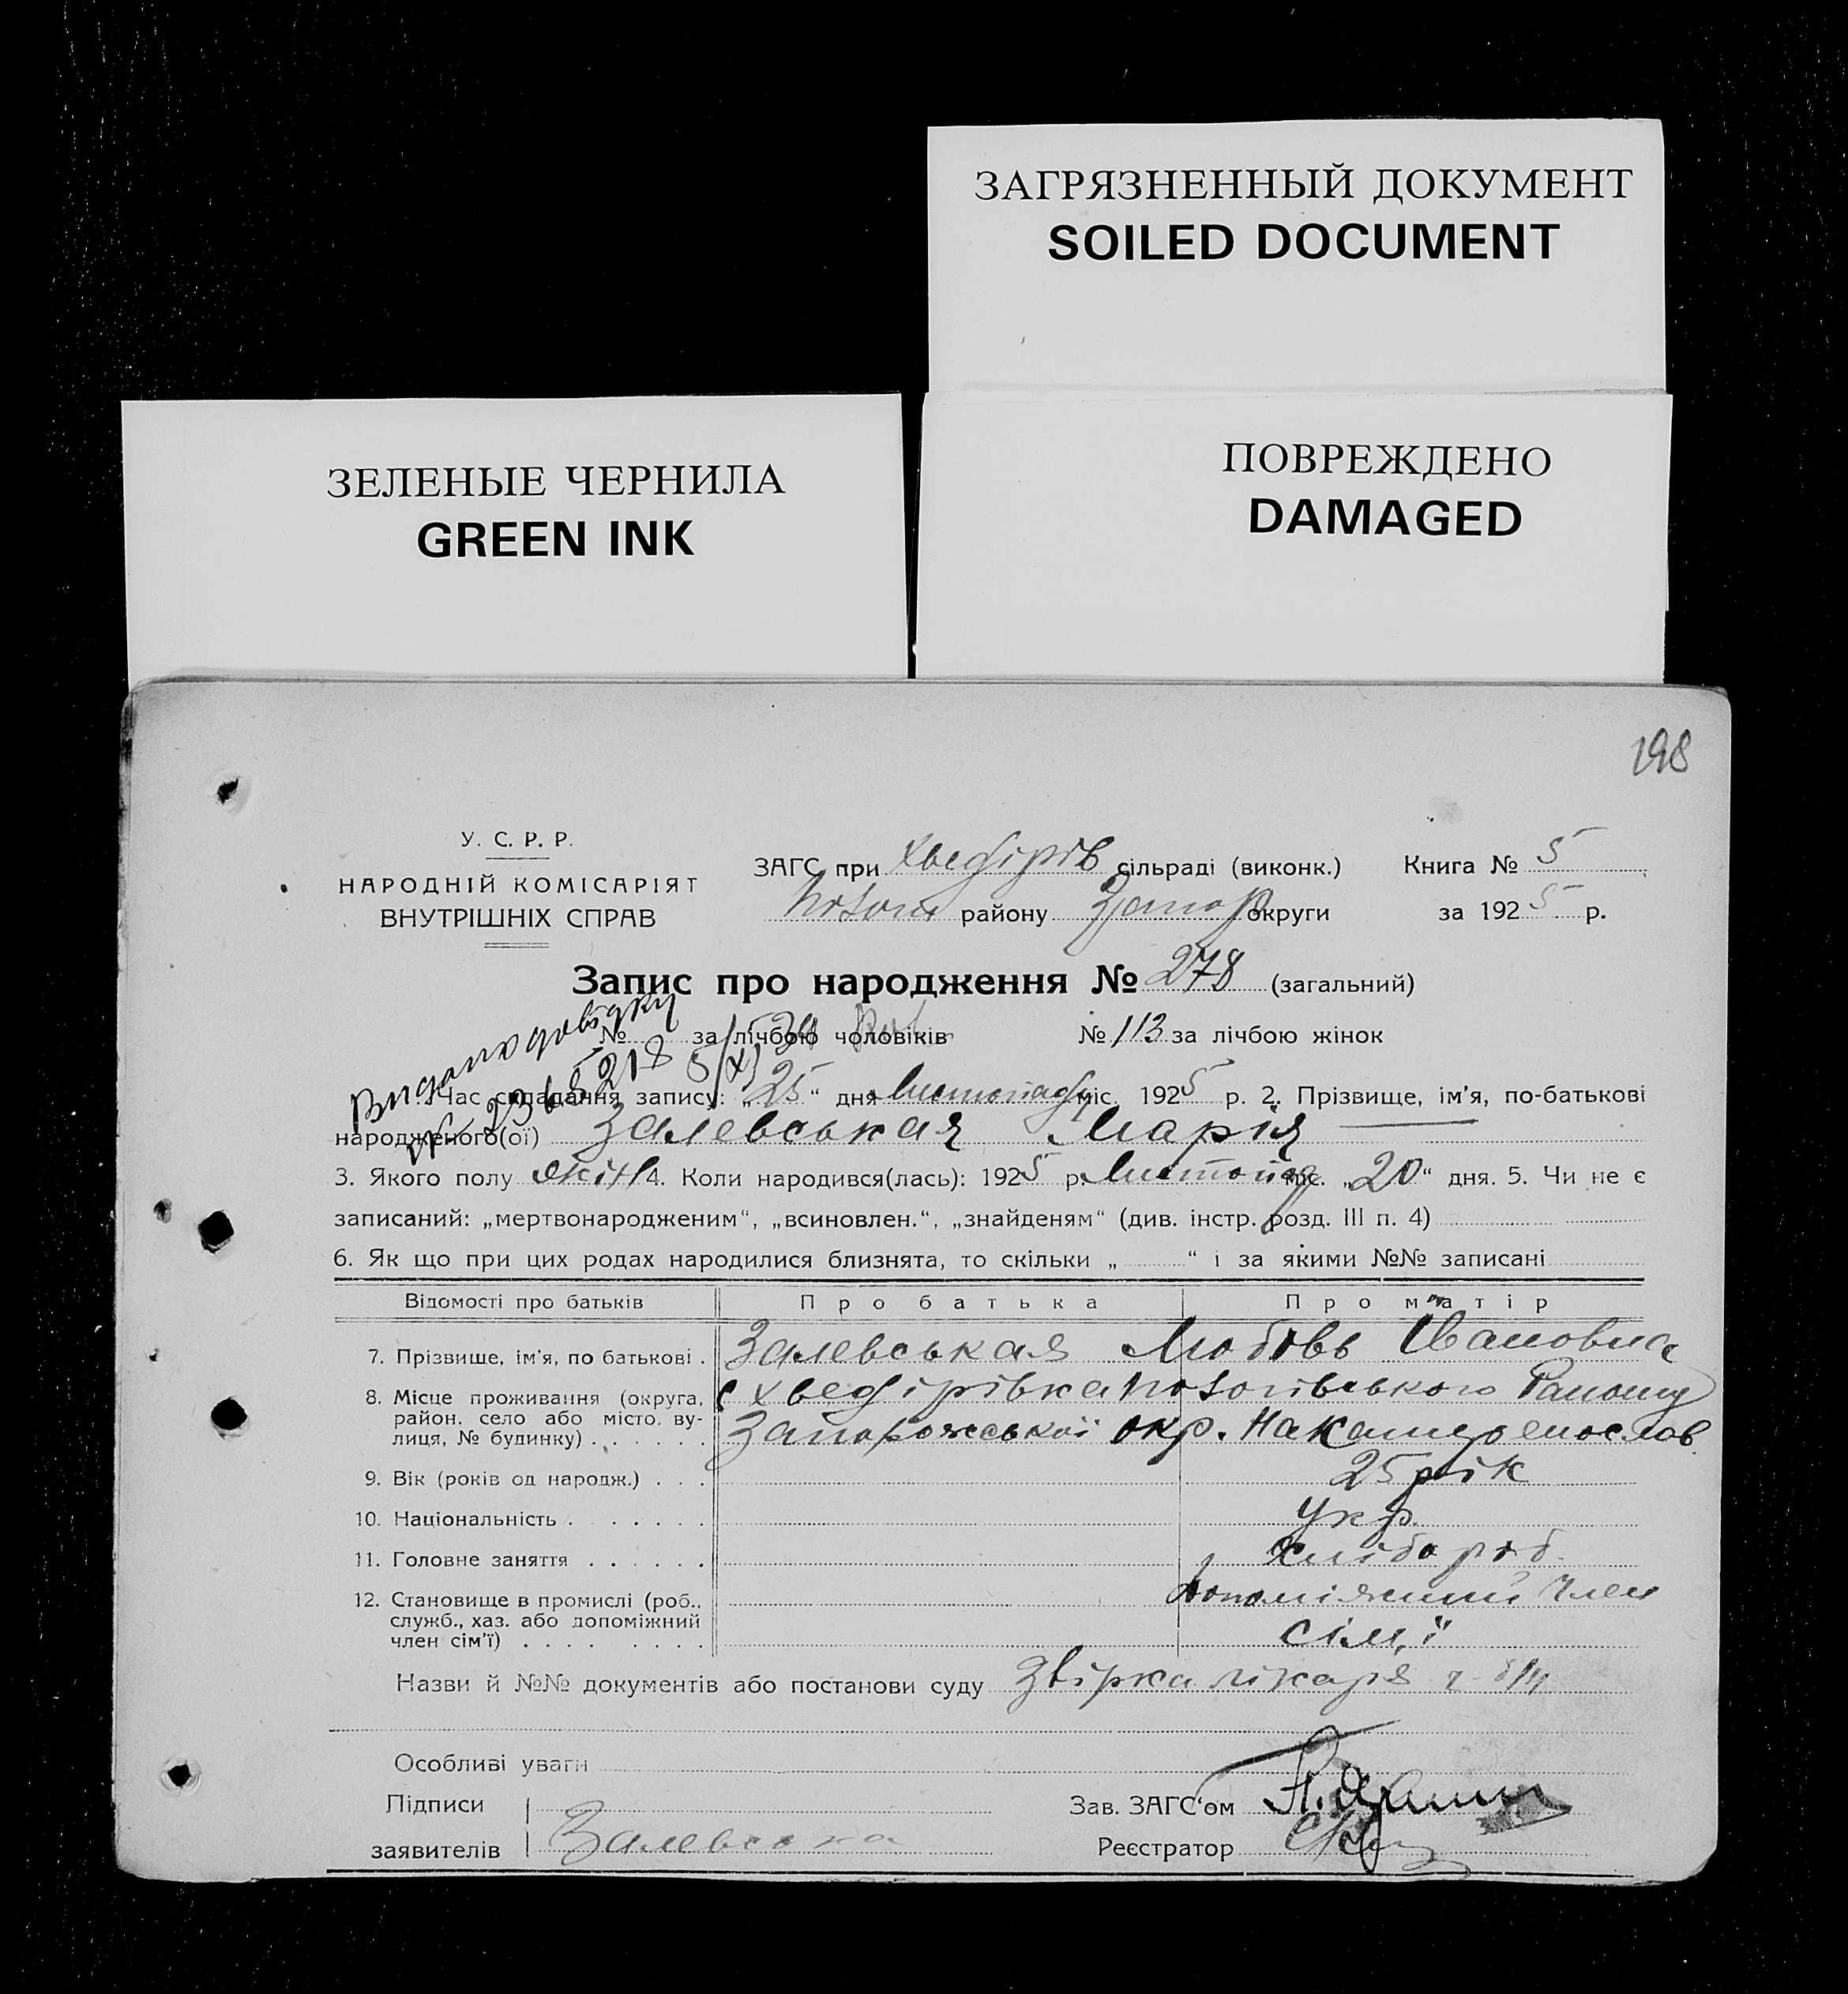 ЗАГРЯЗНЕННЫЙ ДОКУМЕНТ
SOILED DOCUMENT
ЗЕЛЕНЫЕ ЧЕРНИЛА
GREEN INK
ПОВРЕЖДЕНО
DAMAGED
198
У. С. Р. Р.
НАРОДНІЙ КОМІСАРІЯТ
ВНУТРІШНІХ СПРАВ
ЗАГС при Хведірів сільраді (виконк.) Книга № 5
району Запор округи за 1925 р.
Запис про народження № 278 (загальний)
№ за лічбою чоловіків № 113 за лічбою жінок
Видано довідку
Час складання запису: „25“ дня Листопаду міс. 1925 р. 2. Прізвище, ім'я, по-батькові
народженого(ої) Залевськая Марія
3. Якого полу жін 4. Коли народився(лась): 1925 р. Листопад міс. „20“ дня. 5. Чи не є
записаний: „мертвонародженим“, „всиновлен.“, „знайденям“ (див. інстр. розд. III п. 4)
6. Як що при цих родах народилися близнята, то скільки „ “ і за якими №№ записані
Відомості про батьків Про батька Про матір
7. Прізвище, ім'я, по батькові . Залевськая Любовь Ивановна
8. Місце проживання (округа, с Хведірівка Району
район, село або місто, ву-
лиця, № будинку) . . . . . . Запорожської окр.
9. Вік (років од народж.) . . . 25 рік
10. Національність . . . . . . . укр.
11. Головне заняття . . . . . . Хлібороб.
12. Становище в промислі (роб., допоміжний Член
служб., хаз. або допоміжний
член сім'ї) . . . . . . . . . сім'ї
Назви й №№ документів або постанови суду Звірка лікаря
Особливі уваги
Підписи Зав. ЗАГС'ом
заявителів Залевська Реєстратор